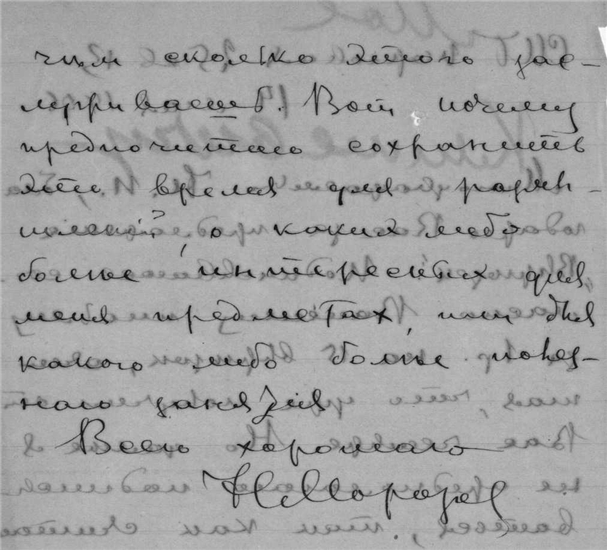 чим сколько этого зас-
матриваешь. Вот почему
предпочитаю сохранить
это время для размы-
шлений, о каких либо
более интересных для
меня предметах, или для
какого либо более полез-
ного занятия
Всего хорошего
НМорозов